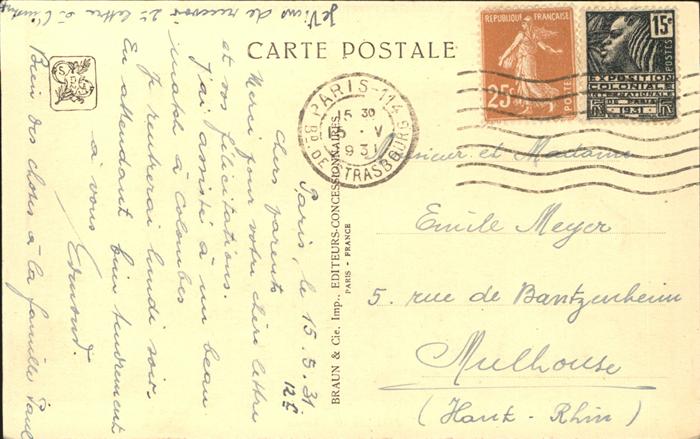 CARTE POSTALE
Paris, le 15.5.31
12h
Chers parents
Merci pour votre chère lettre
et vos félicitations.
J'ai assisté à un beau
match à Colombes
Je rentrerai lundi soir.
En attendant bien tendrement
à vous
Edmond.
Bien des choses à la famille Paul
Je viens de recevoir 2e lettre à l'instant
BRAUN & Cie, Imp., EDITEURS-CONCESSIONNAIRES
PARIS - FRANCE
REPUBLIQUE FRANÇAISE
25c
POSTES
15c
POSTES
EXPOSITION
COLONIALE
INTERNATIONALE
DE PARIS
1931
PARIS-114
15 30
15 V
1931
BD. DE STRASBOURG
Monsieur et Madame
Emile Meyer
5. rue de Bantzenheim
Mulhouse
(Haut-Rhin)